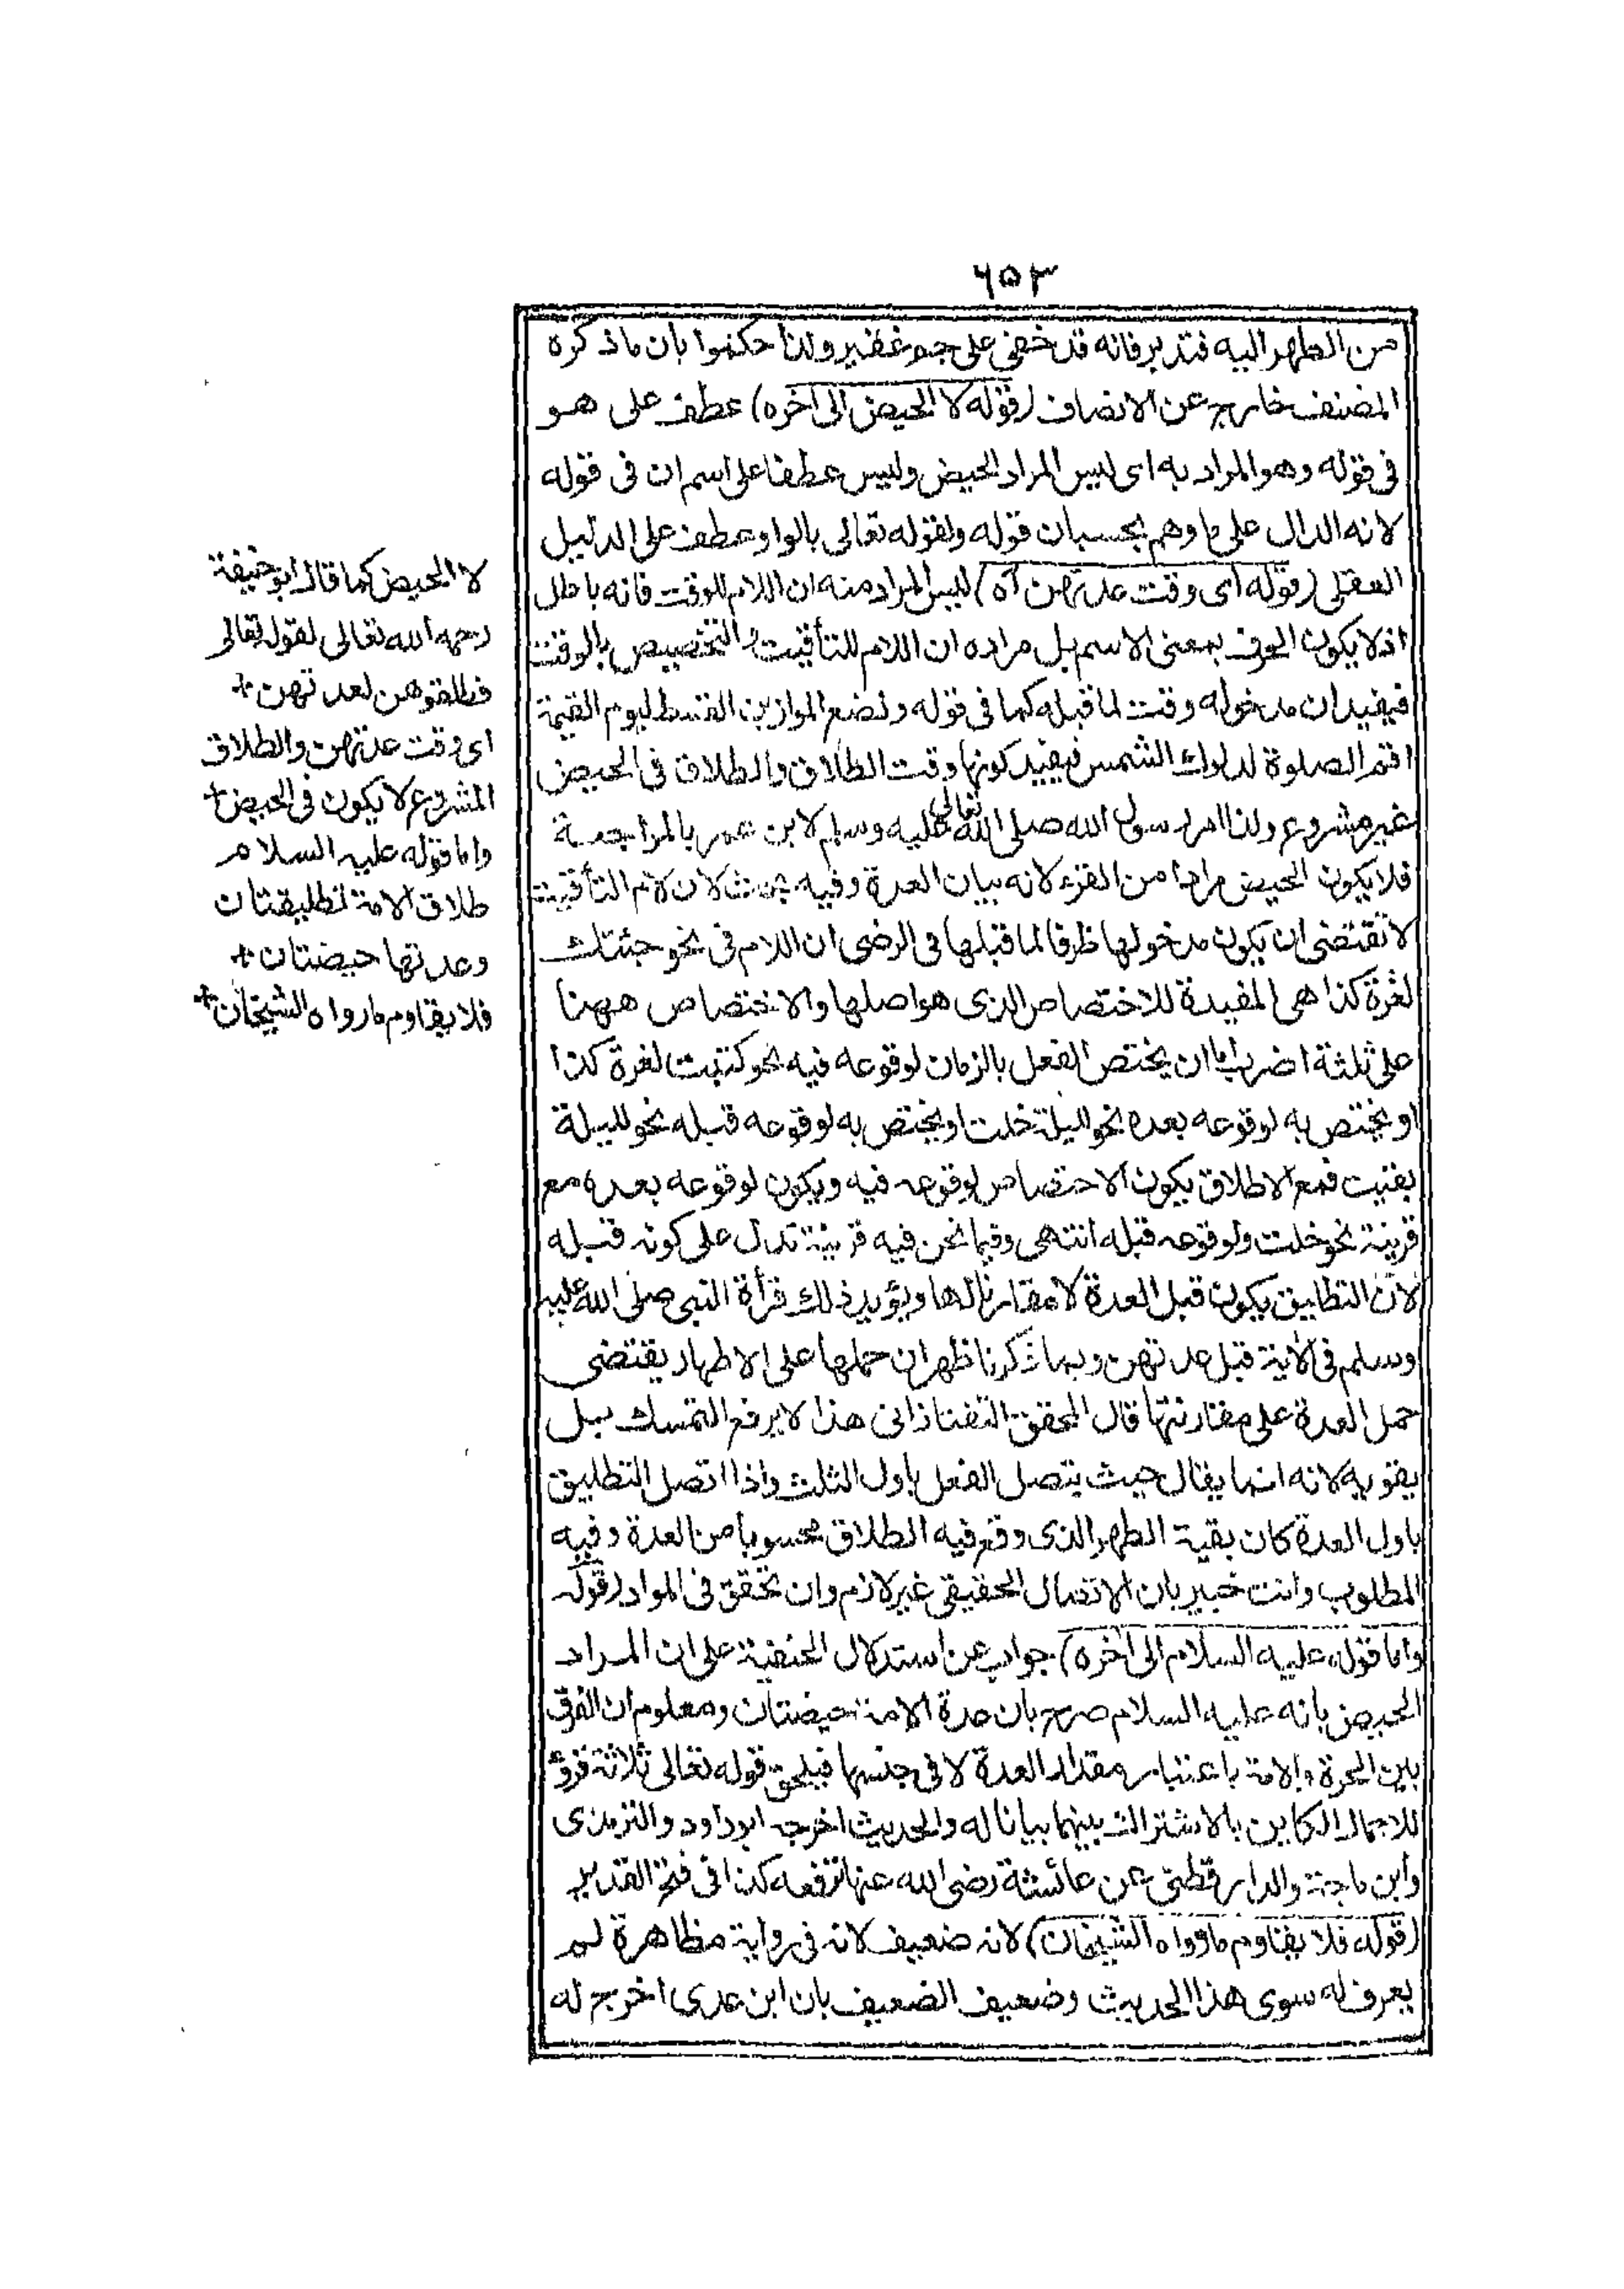 ٦٥٣
من الطهر اليه فتدبر فانه قد خفى على جم غفير ولذا حكموا بان ما ذكره
المصنف خارج عن الانصاف (قوله لا الحيض الى آخره) عطف على هو
فى قوله وهو المراد به اى ليس المراد الحيض وليس عطفا على اسم ان فى قوله
لانه الدال على ما وهم بحسبان قوله ولقوله تعالى بالواو عطف على الدليل
العقلى (قوله اى وقت عدتهن آه) ليس المراد منه ان اللام للوقت فانه باطل
اذ لا يكون الحرف بمعنى الاسم بل مراده ان اللام للتأقيت والتخصيص بالوقت
فيفيد ان مدخوله وقت لما قبله كما فى قوله ونضع الموازين القسط ليوم القيمة
اقم الصلوة لدلوك الشمس فيفيد كونها وقت الطلاق والطلاق فى الحيض
غير مشروع ولذا امر رسول الله صلى الله تعالى عليه وسلم لابن عمر بالمراجعة
فلا يكون الحيض مرادا من القرء لانه بيان العدة وفيه بحث لان لام التأقيت
لا تقتضى ان يكون مدخولها ظرفا لما قبلها فى الرضى ان اللام فى نحو جئتك
لغرة كذا هى المفيدة للاختصاص الذى هو اصلها والاختصاص ههنا
على ثلثة اضرب اما ان يختص الفعل بالزمان لوقوعه فيه نحو كتبت لغرة كذا
او يختص به لوقوعه بعده نحو لليلة خلت او يختص به لوقوعه قبله نحو لليلة
بقيت فمع الاطلاق يكون الاختصاص لوقوعه فيه ويكون لوقوعه بعده مع
قرينة نحو خلت ولوقوعه قبله انتهى وفيما نحن فيه قرينة تدل على كونه قبله
لان التطليق يكون قبل العدة لا مقارنا لها ويؤيد ذلك قرأة النبى صلى الله عليه
وسلم فى الآية قبل عدتهن وبما ذكرنا ظهر ان حملها على الاطهار يقتضى
حمل العدة على مقارنتها قال المحقق التفتازانى هذا لا يرفع التمسك بل
يقويه لانه انما يقال حيث يتصل الفعل باول الثلث واذا اتصل التطليق
باول العدة كان بقية الطهر الذى وقع فيه الطلاق محسوبا من العدة وفيه
المطلوب وانت خبير بان الاتصال الحقيقى غير لازم وان تحقق فى المواد (قوله
واما قوله عليه السلام الى آخره) جواب عن استدلال الحنفية على ان المراد
الحيض بانه عليه السلام صرح بان عدة الامة حيضتان ومعلوم ان الفرق
بين الحرة والامة باعتبار مقدار العدة لا فى جنسها فيلحق قوله تعالى ثلاثة قروء
للاجمال الكاين بالاشتراك بينهما بيانا له والحديث اخرجه ابو داود والترمذى
وابن ماجة والدار قطنى عن عائشة رضى الله عنها ترفعه كذا فى فتح القدير
(قوله فلا يقاوم ما رواه الشيخان) لانه ضعيف لانه فى رواية مظاهرة لم
يعرف له سوى هذا الحديث وضعيف الضعيف بان ابن عدى اخرج له
لا الحيض كما قال ابو حنيفة
رحمه الله تعالى لقوله تعالى
فطلقوهن لعدتهن +
اى وقت عدتهن والطلاق
المشروع لا يكون فى الحيض +
واما قوله عليه السلام
طلاق الامة تطليقتان
وعدتها حيضتان +
فلا يقاوم ما رواه الشيخان +